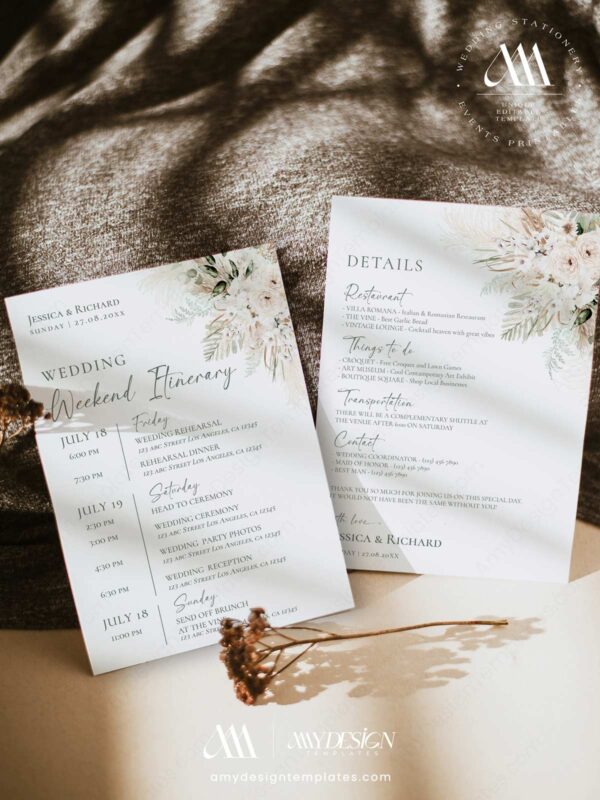 WEDDING STATIONERY
EVENTS PRINTABLE
UNIQUE
EDITABLE
TEMPLATES
JESSICA & RICHARD
SUNDAY | 27.08.20XX
WEDDING
Weekend Itinerary
JULY 18
Friday
6:00 PM
WEDDING REHEARSAL
123 ABC STREET LOS ANGELES, CA 12345
7:30 PM
REHEARSAL DINNER
123 ABC STREET LOS ANGELES, CA 12345
JULY 19
Saturday
2:30 PM
HEAD TO CEREMONY
3:00 PM
WEDDING CEREMONY
123 ABC STREET LOS ANGELES, CA 12345
4:30 PM
WEDDING PARTY PHOTOS
123 ABC STREET LOS ANGELES, CA 12345
6:30 PM
WEDDING RECEPTION
123 ABC STREET LOS ANGELES, CA 12345
JULY 18
Sunday
11:00 PM
SEND OFF BRUNCH
AT THE
CA 12345
DETAILS
Restaurant
- VILLA ROMANA - Italian & Romanian Restaurant
- THE VINE - Best Garlic Bread
- VINTAGE LOUNGE - Cocktail heaven with great vibes
Things to do
- CROQUET - Free Croquet and Lawn Games
- ART MUSEUM - Cool Contemporary Art Exhibit
- BOUTIQUE SQUARE - Shop Local Businesses
Transportation
THERE WILL BE A COMPLEMENTARY SHUTTLE AT
THE VENUE AFTER 6:00 ON SATURDAY
Contact
- WEDDING COORDINATOR - (123) 456 7890
- MAID OF HONOR - (123) 456 7890
- BEST MAN - (123) 456 7890
THANK YOU SO MUCH FOR JOINING US ON THIS SPECIAL DAY.
IT WOULD NOT HAVE BEEN THE SAME WITHOUT YOU!
with love,
JESSICA & RICHARD
SUNDAY | 27.08.20XX
AMYDESIGN
TEMPLATES
amydesigntemplates.com